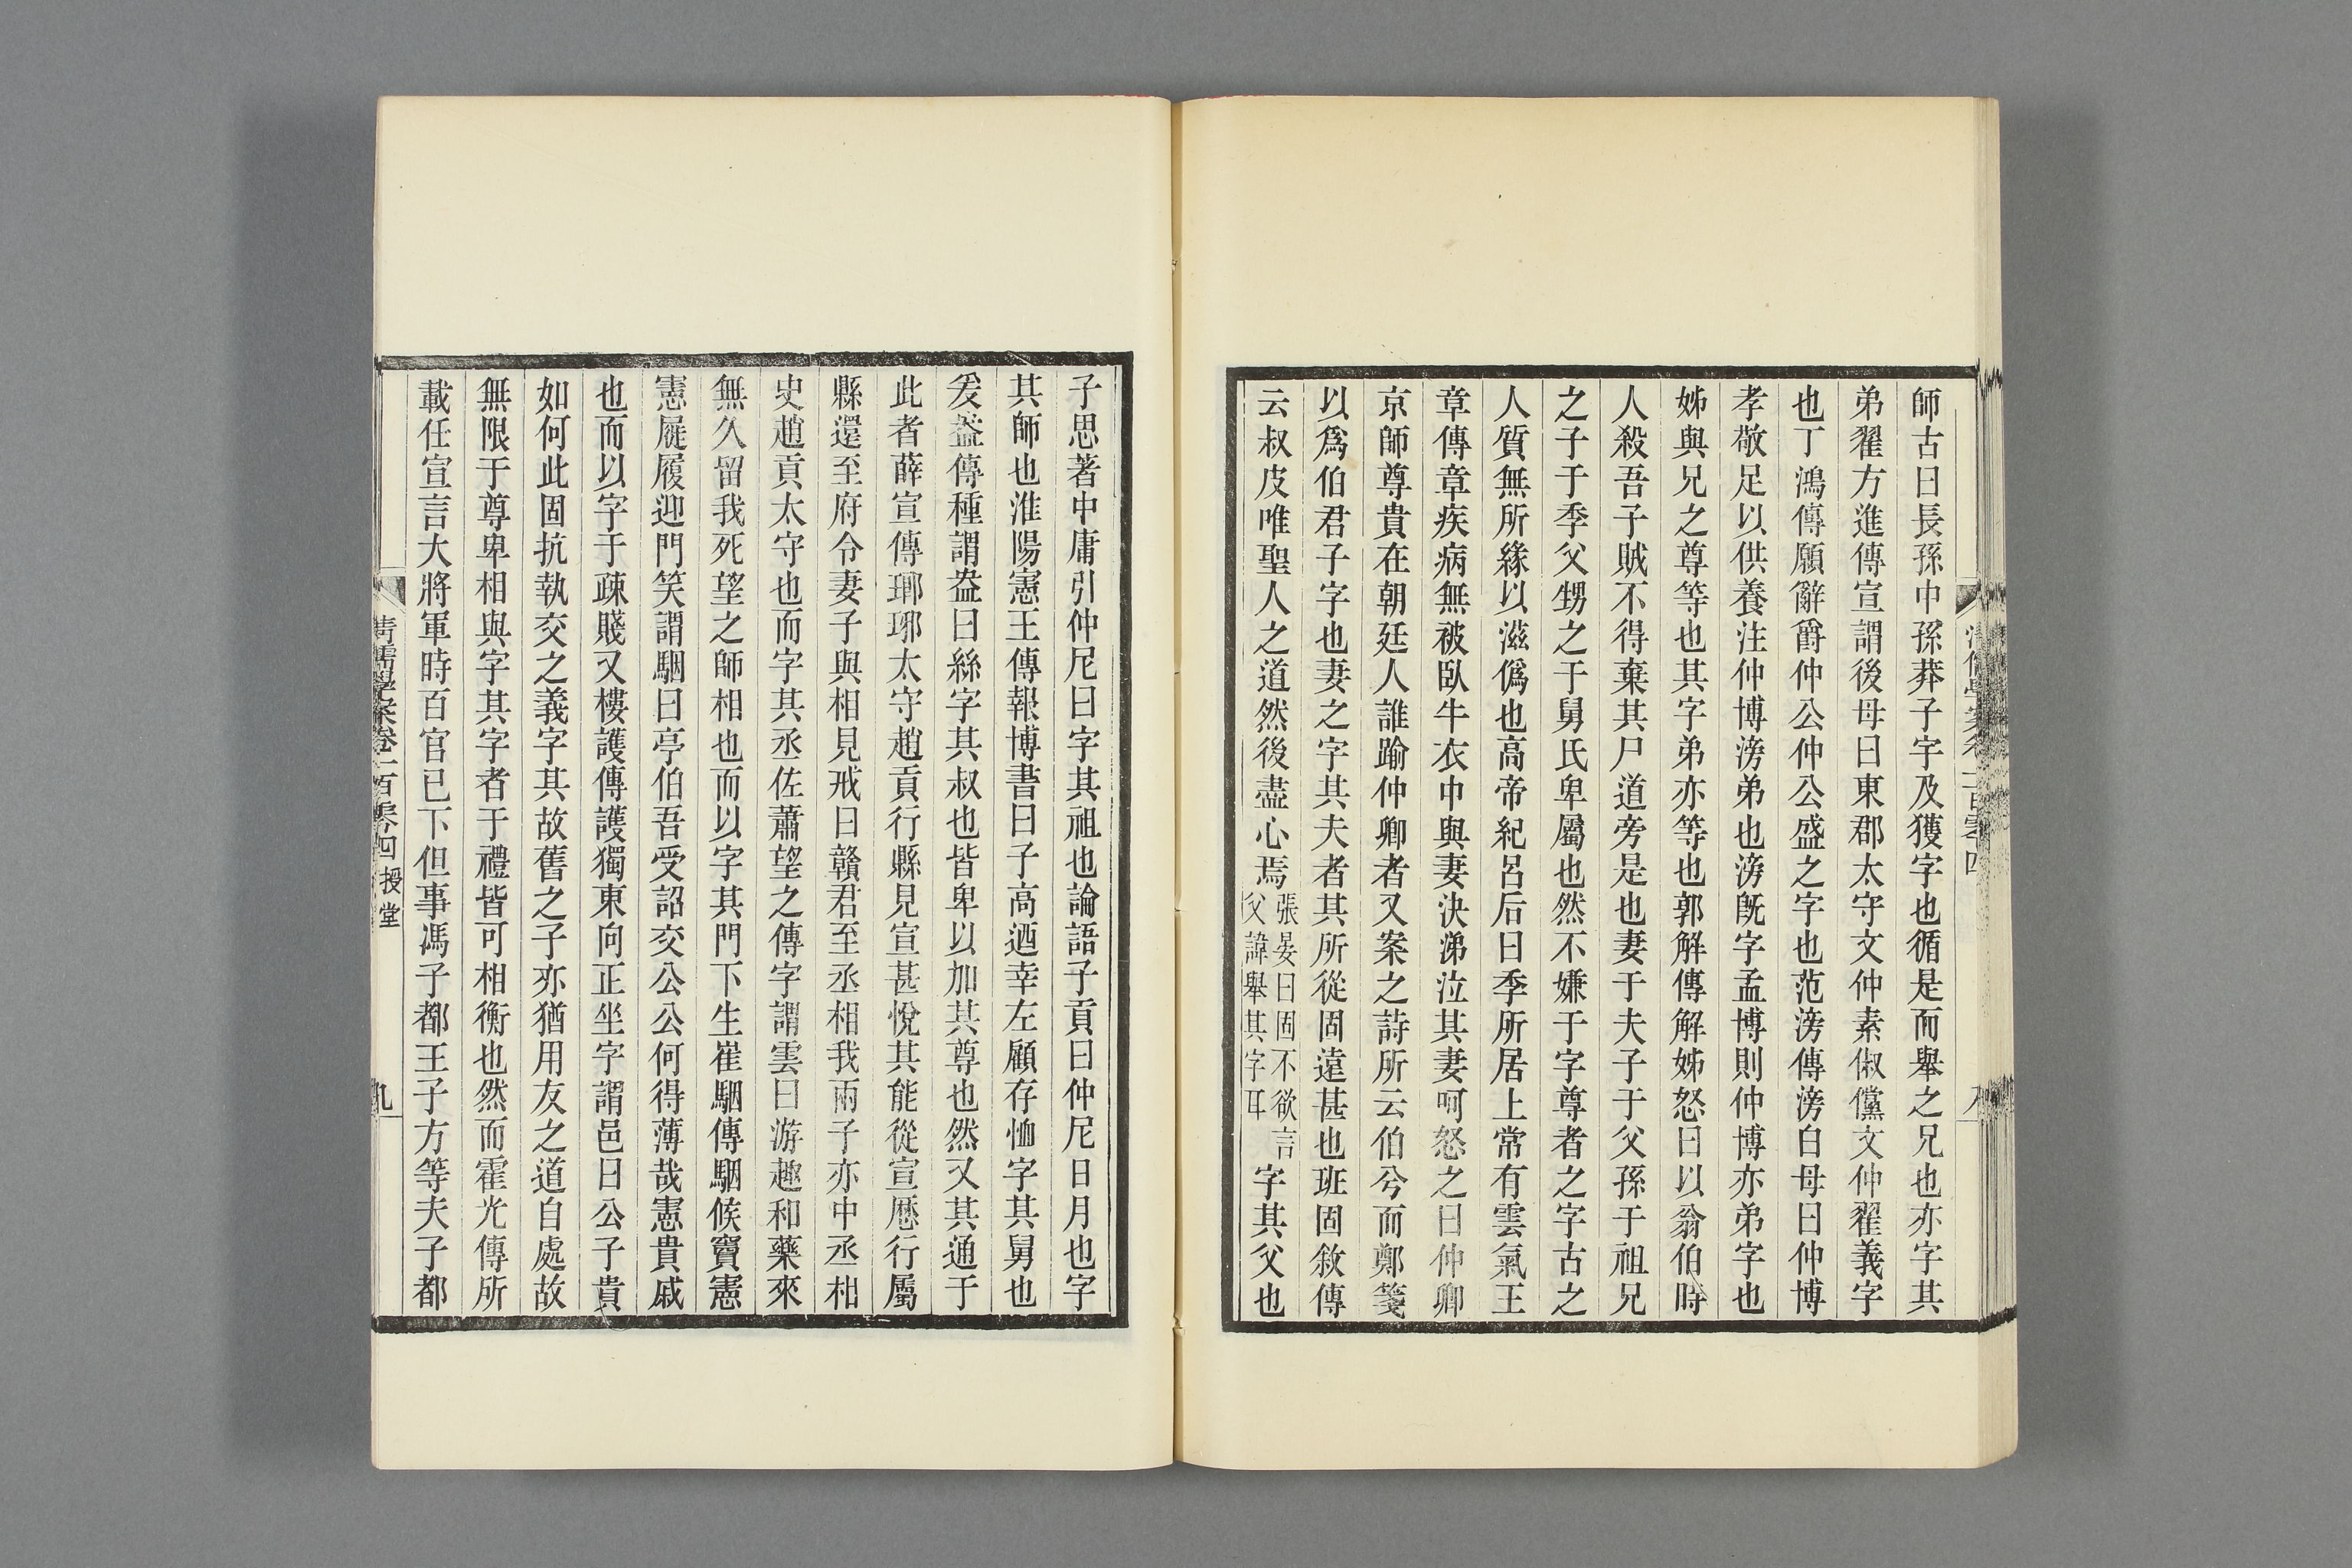 師古曰長孫中孫莽子字及獲字也循是而舉之兄也亦字其
弟翟方進傳宣謂後母曰東郡太守文仲素俶儻文仲翟義字
也丁鴻傳願辭爵仲公仲公盛之字也范滂傳滂白母曰仲博
孝敬足以供養注仲博滂弟也滂旣字孟博則仲博亦弟字也
姊與兄之尊等也其字弟亦等也郭解傳解姊怒曰以翁伯時
人殺吾子賊不得棄其尸道旁是也妻于夫子于父孫于祖兄
之子于季父甥之于舅氏卑屬也然不嫌于字尊者之字古之
人質無所緣以滋僞也高帝紀呂后曰季所居上常有雲氣王
章傳章疾病無被臥牛衣中與妻決涕泣其妻呵怒之曰仲卿
京師尊貴在朝廷人誰踰仲卿者又案之詩所云伯兮而鄭箋
以爲伯君子字也妻之字其夫者其所從固遠甚也班固敘傳
云叔皮唯聖人之道然後盡心焉張晏曰固不欲言父諱舉其字耳字其父也
子思著中庸引仲尼曰字其祖也論語子貢曰仲尼日月也字
其師也淮陽憲王傳報博書曰子高迺幸左顧存恤字其舅也
爰盎傳種謂盎曰絲字其叔也皆卑以加其尊也然又其通于
此者薛宣傳瑯琊太守趙貢行縣見宣甚悅其能從宣歷行屬
縣還至府令妻子與相見戒曰贛君至丞相我兩子亦中丞相
史趙貢太守也而字其丞佐蕭望之傳字謂雲曰游趣和藥來
無久留我死望之師相也而以字其門下生崔駰傳駰候竇憲
憲屣履迎門笑謂駰曰亭伯吾受詔交公公何得薄哉憲貴戚
也而以字于疎賤又樓護傳護獨東向正坐字謂邑曰公子貴
如何此固抗執交之義字其故舊之子亦猶用友之道自處故
無限于尊卑相與字其字者于禮皆可相衡也然而霍光傳所
載任宣言大將軍時百官已下但事馮子都王子方等夫子都
清儒學案卷二百零四 授堂
九